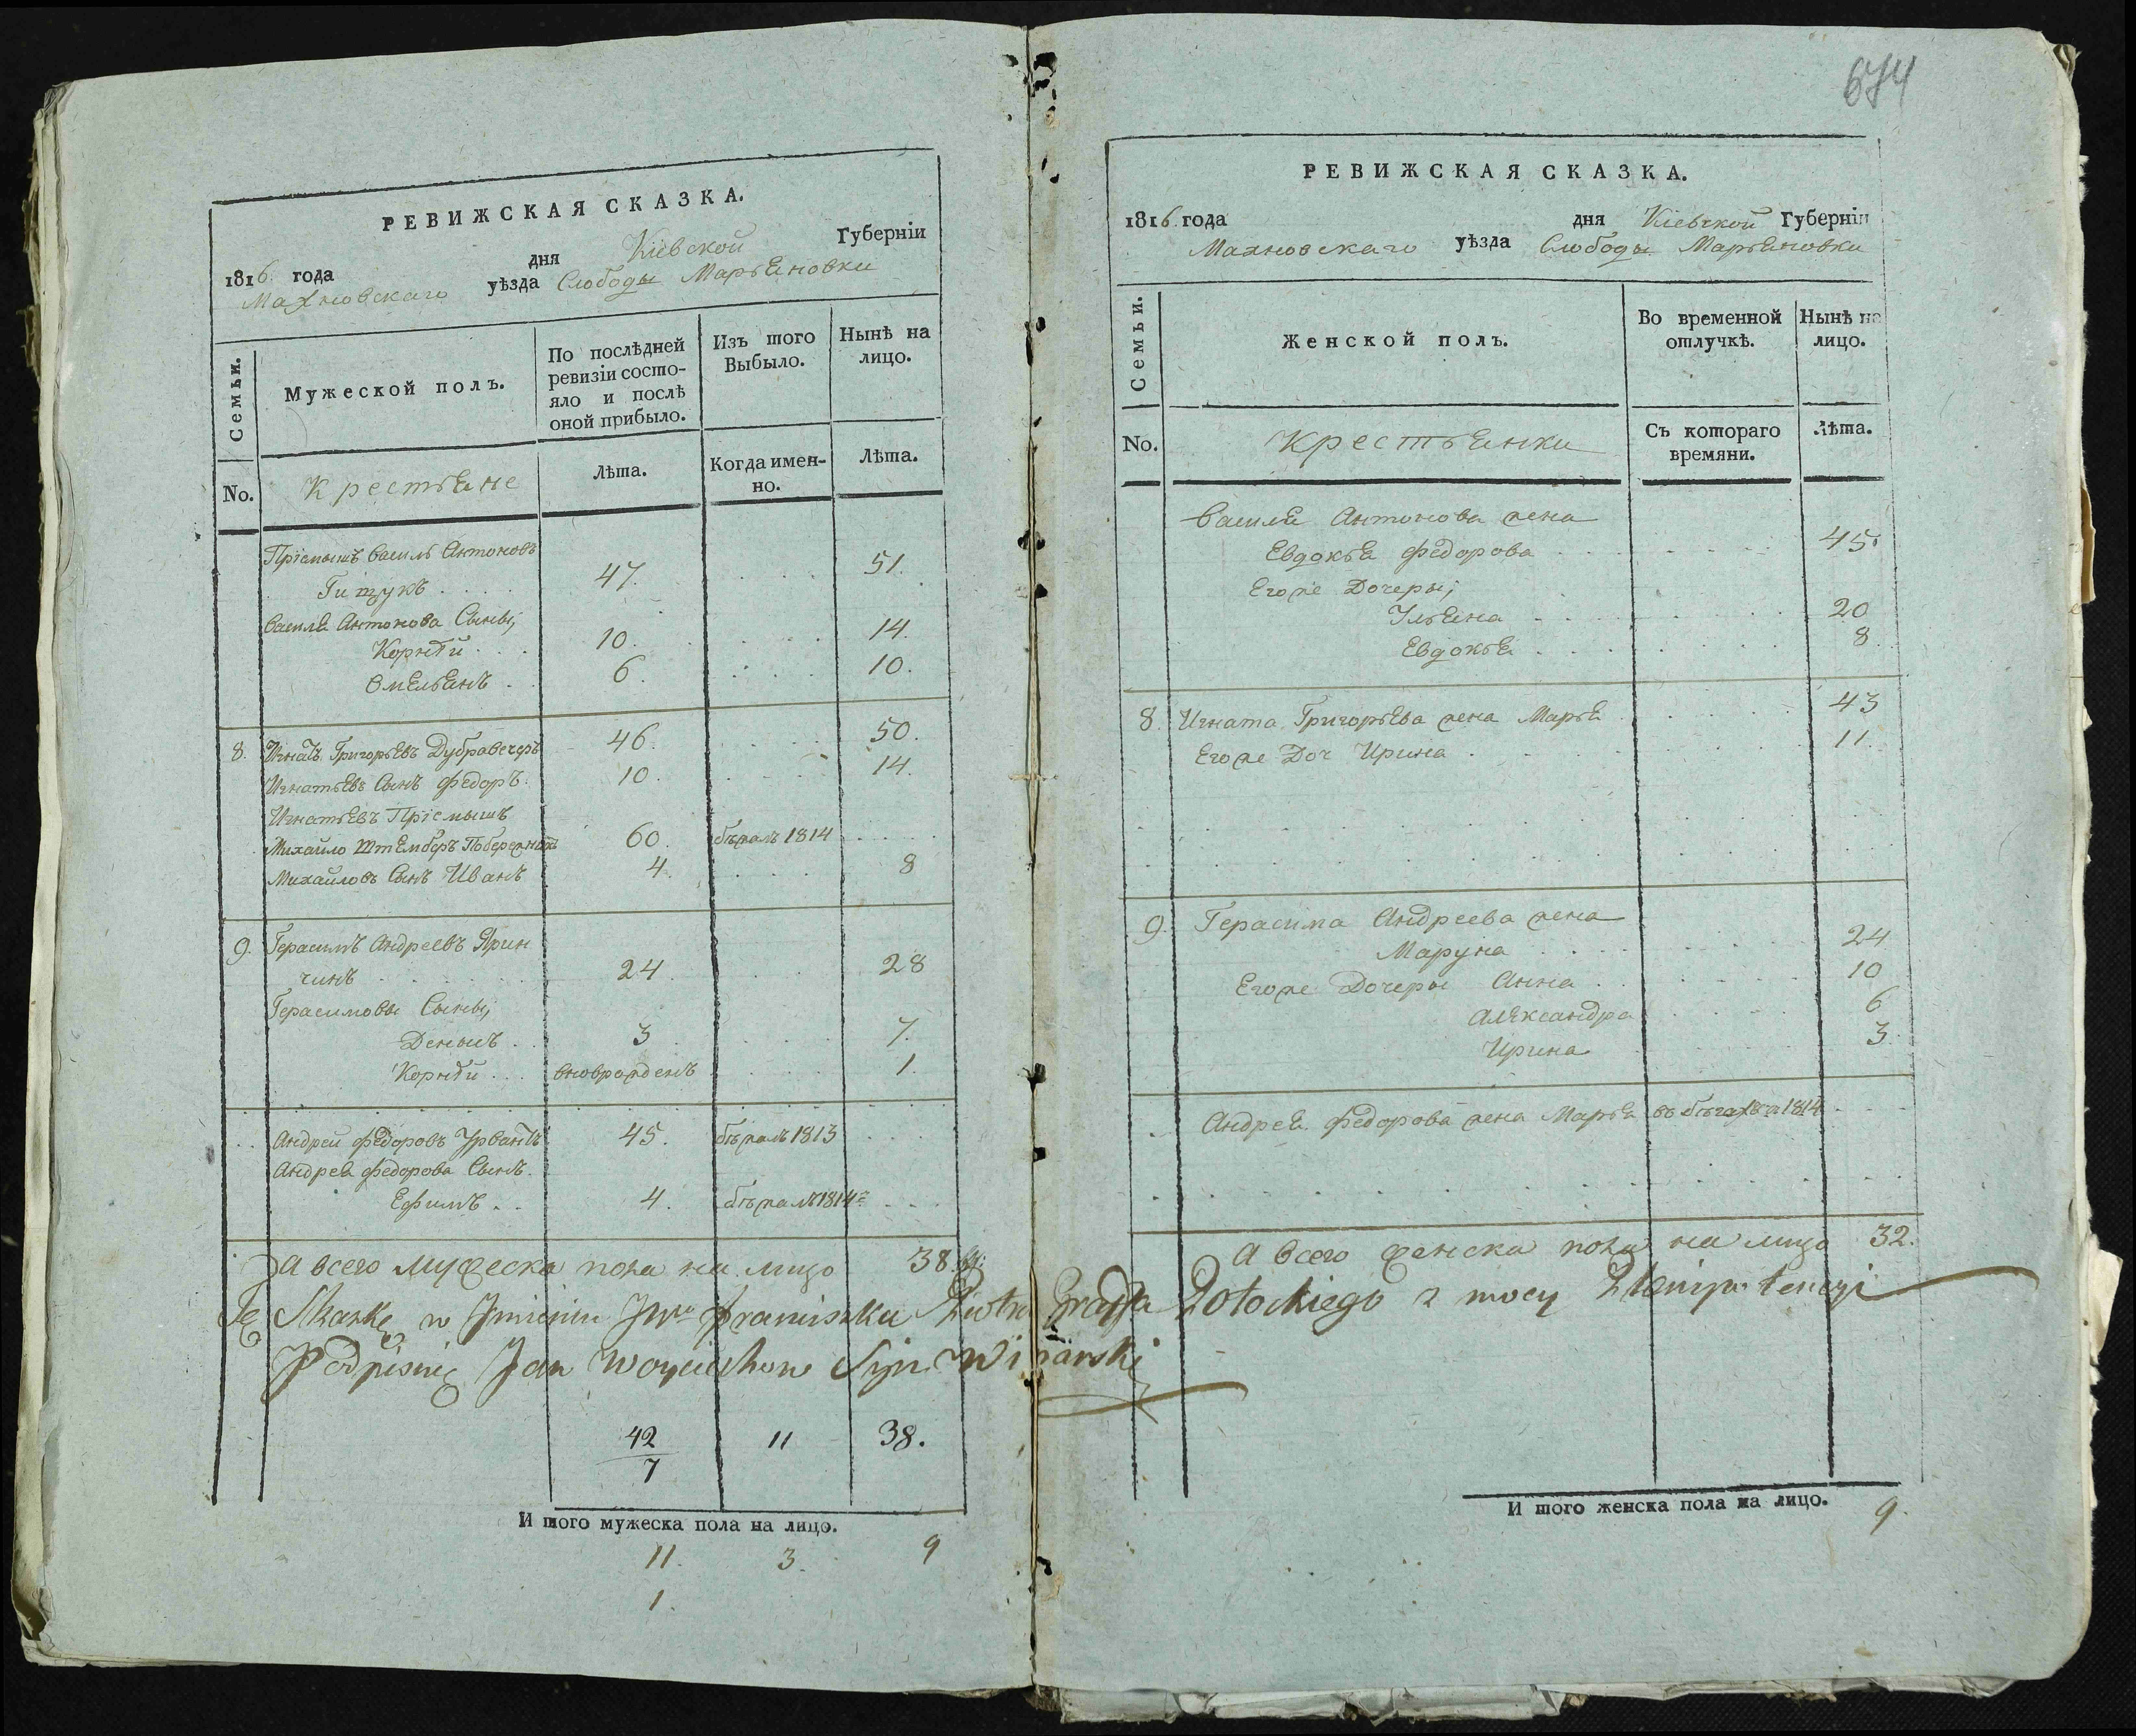 674
РЕВИЖСКАЯ СКАЗКА.
1816 года дня Кіевской Губерніи
Махновскаго уѣзда Слободы Марьяновки
Семьи.
Мужеской полъ.
По послѣдней ревизіи состо-
яло и послѣ
оной прибыло.
Изъ того
Выбыло.
Нынѣ на
лицо.
No.
Крестьяне
Лѣта.
Когда имен-
но.
Лѣта.
Пріемышъ Василь Антоновъ
47. 51.
Василя Антонова Сыны,
Корнѣй 10. 14.
Омельянъ 6. 10.
8. Игнатъ Григорьевъ 46. 50.
Игнатьевъ Сынъ Федоръ 10. 14.
Игнатьевъ Пріемышъ
Михайло 60. бѣжалъ 1814
Михайловъ Сынъ Иванъ 4. 8
9. Герасимъ Андреевъ Ярин
чинъ 24. 28
Герасимовы Сыны,
Денысъ 3 7.
Корнѣй вновьрожденъ 1.
Андрей Федоровъ 45. бѣжалъ 1813
Андрея Федорова Сынъ
Ефимъ 4. бѣжалъ 1814
А всего мужеска пола на лицо 38.
Tę Skazkę w Jmieniu JWo Franciszka Piotra Graffa Potockiego z mocy Plenipotencyi
Podpisuię Jan Woyciechow Syn
42 11 38.
7
И того мужеска пола на лицо.
11. 3. 9
1.
РЕВИЖСКАЯ СКАЗКА.
1816 года дня Кіевской Губерніи
Махновскаго уѣзда Слободы Марьяновки
Семьи.
Женской полъ.
Во временной
отлучкѣ.
Нынѣ на
лицо.
No.
Крестьянки
Съ котораго
времяни.
Лѣта.
Василя Антонова жена
Евдокья Федорова 45.
Егоже Дочеры,
Ульяна 20
Евдокья 8.
8. Игната Григорьева жена Марья 43
Егоже Доч Ирина 11.
9. Герасима Андреева жена
Маруна 24
Егоже Дочеры Анна 10
Александра 6
Ирина 3.
Андрея Федорова жена Марья въ бѣгахъ 1814
А всего женска пола на лицо 32.
И того женска пола на лицо. 9.